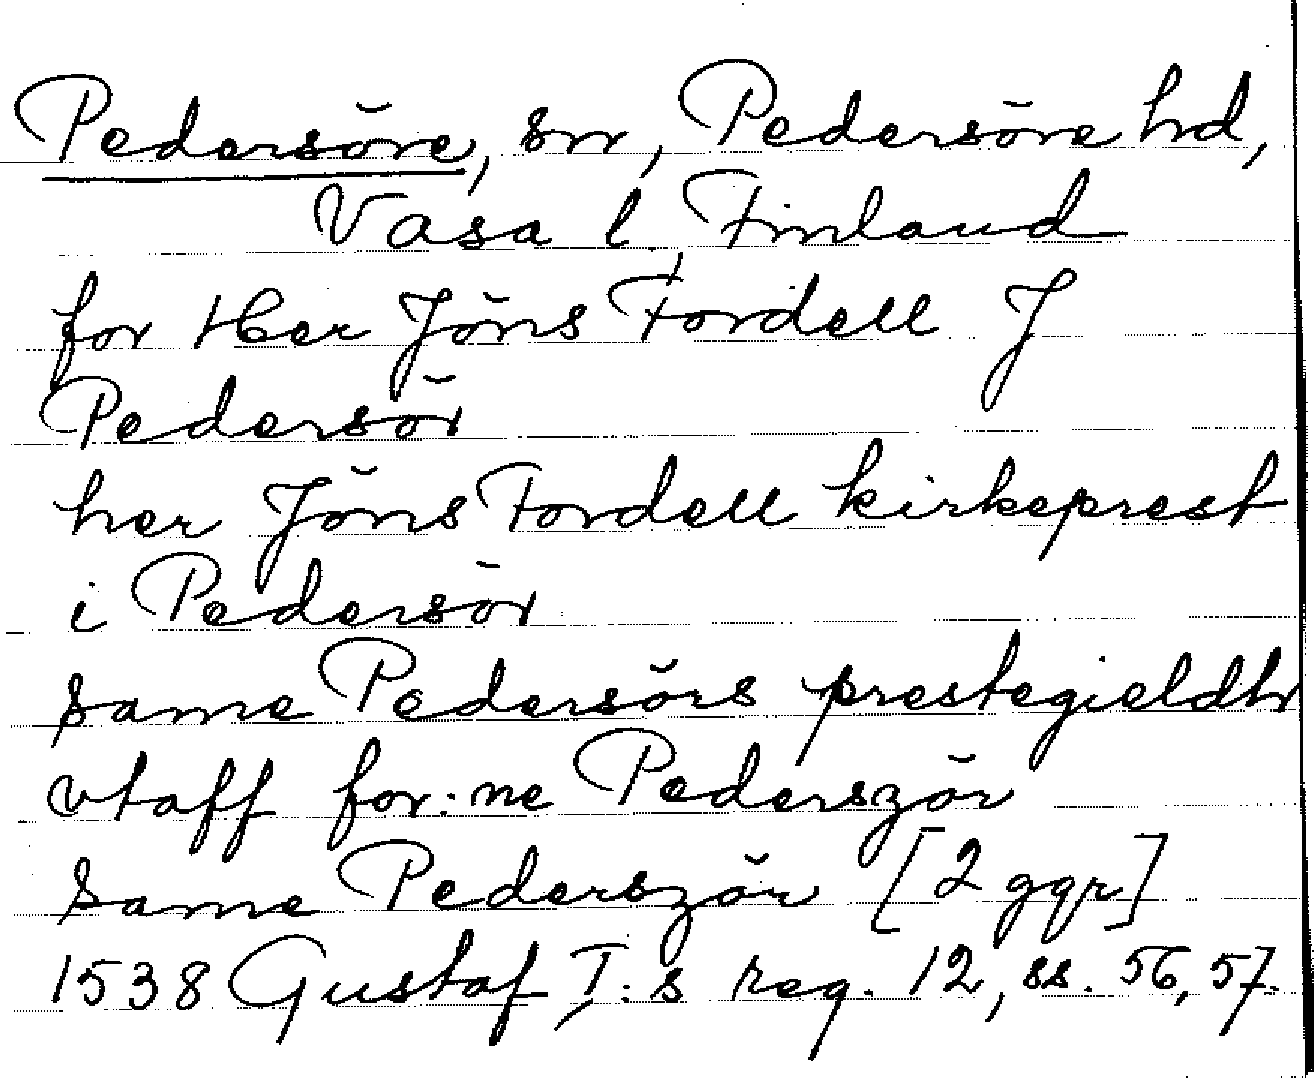 Pedersöre, sn, Pedersöre hd,
Vasa l, Finland
for Her Jöns Fordell J
Pedersör
her Jöns Fordell kirkeprest
i Pedersör
same Pedersörs prestegieldh
vtaff for:ne Pederször
same Pederször [2 ggr]
1538 Gustaf I:s reg. 12, ss. 56, 57.